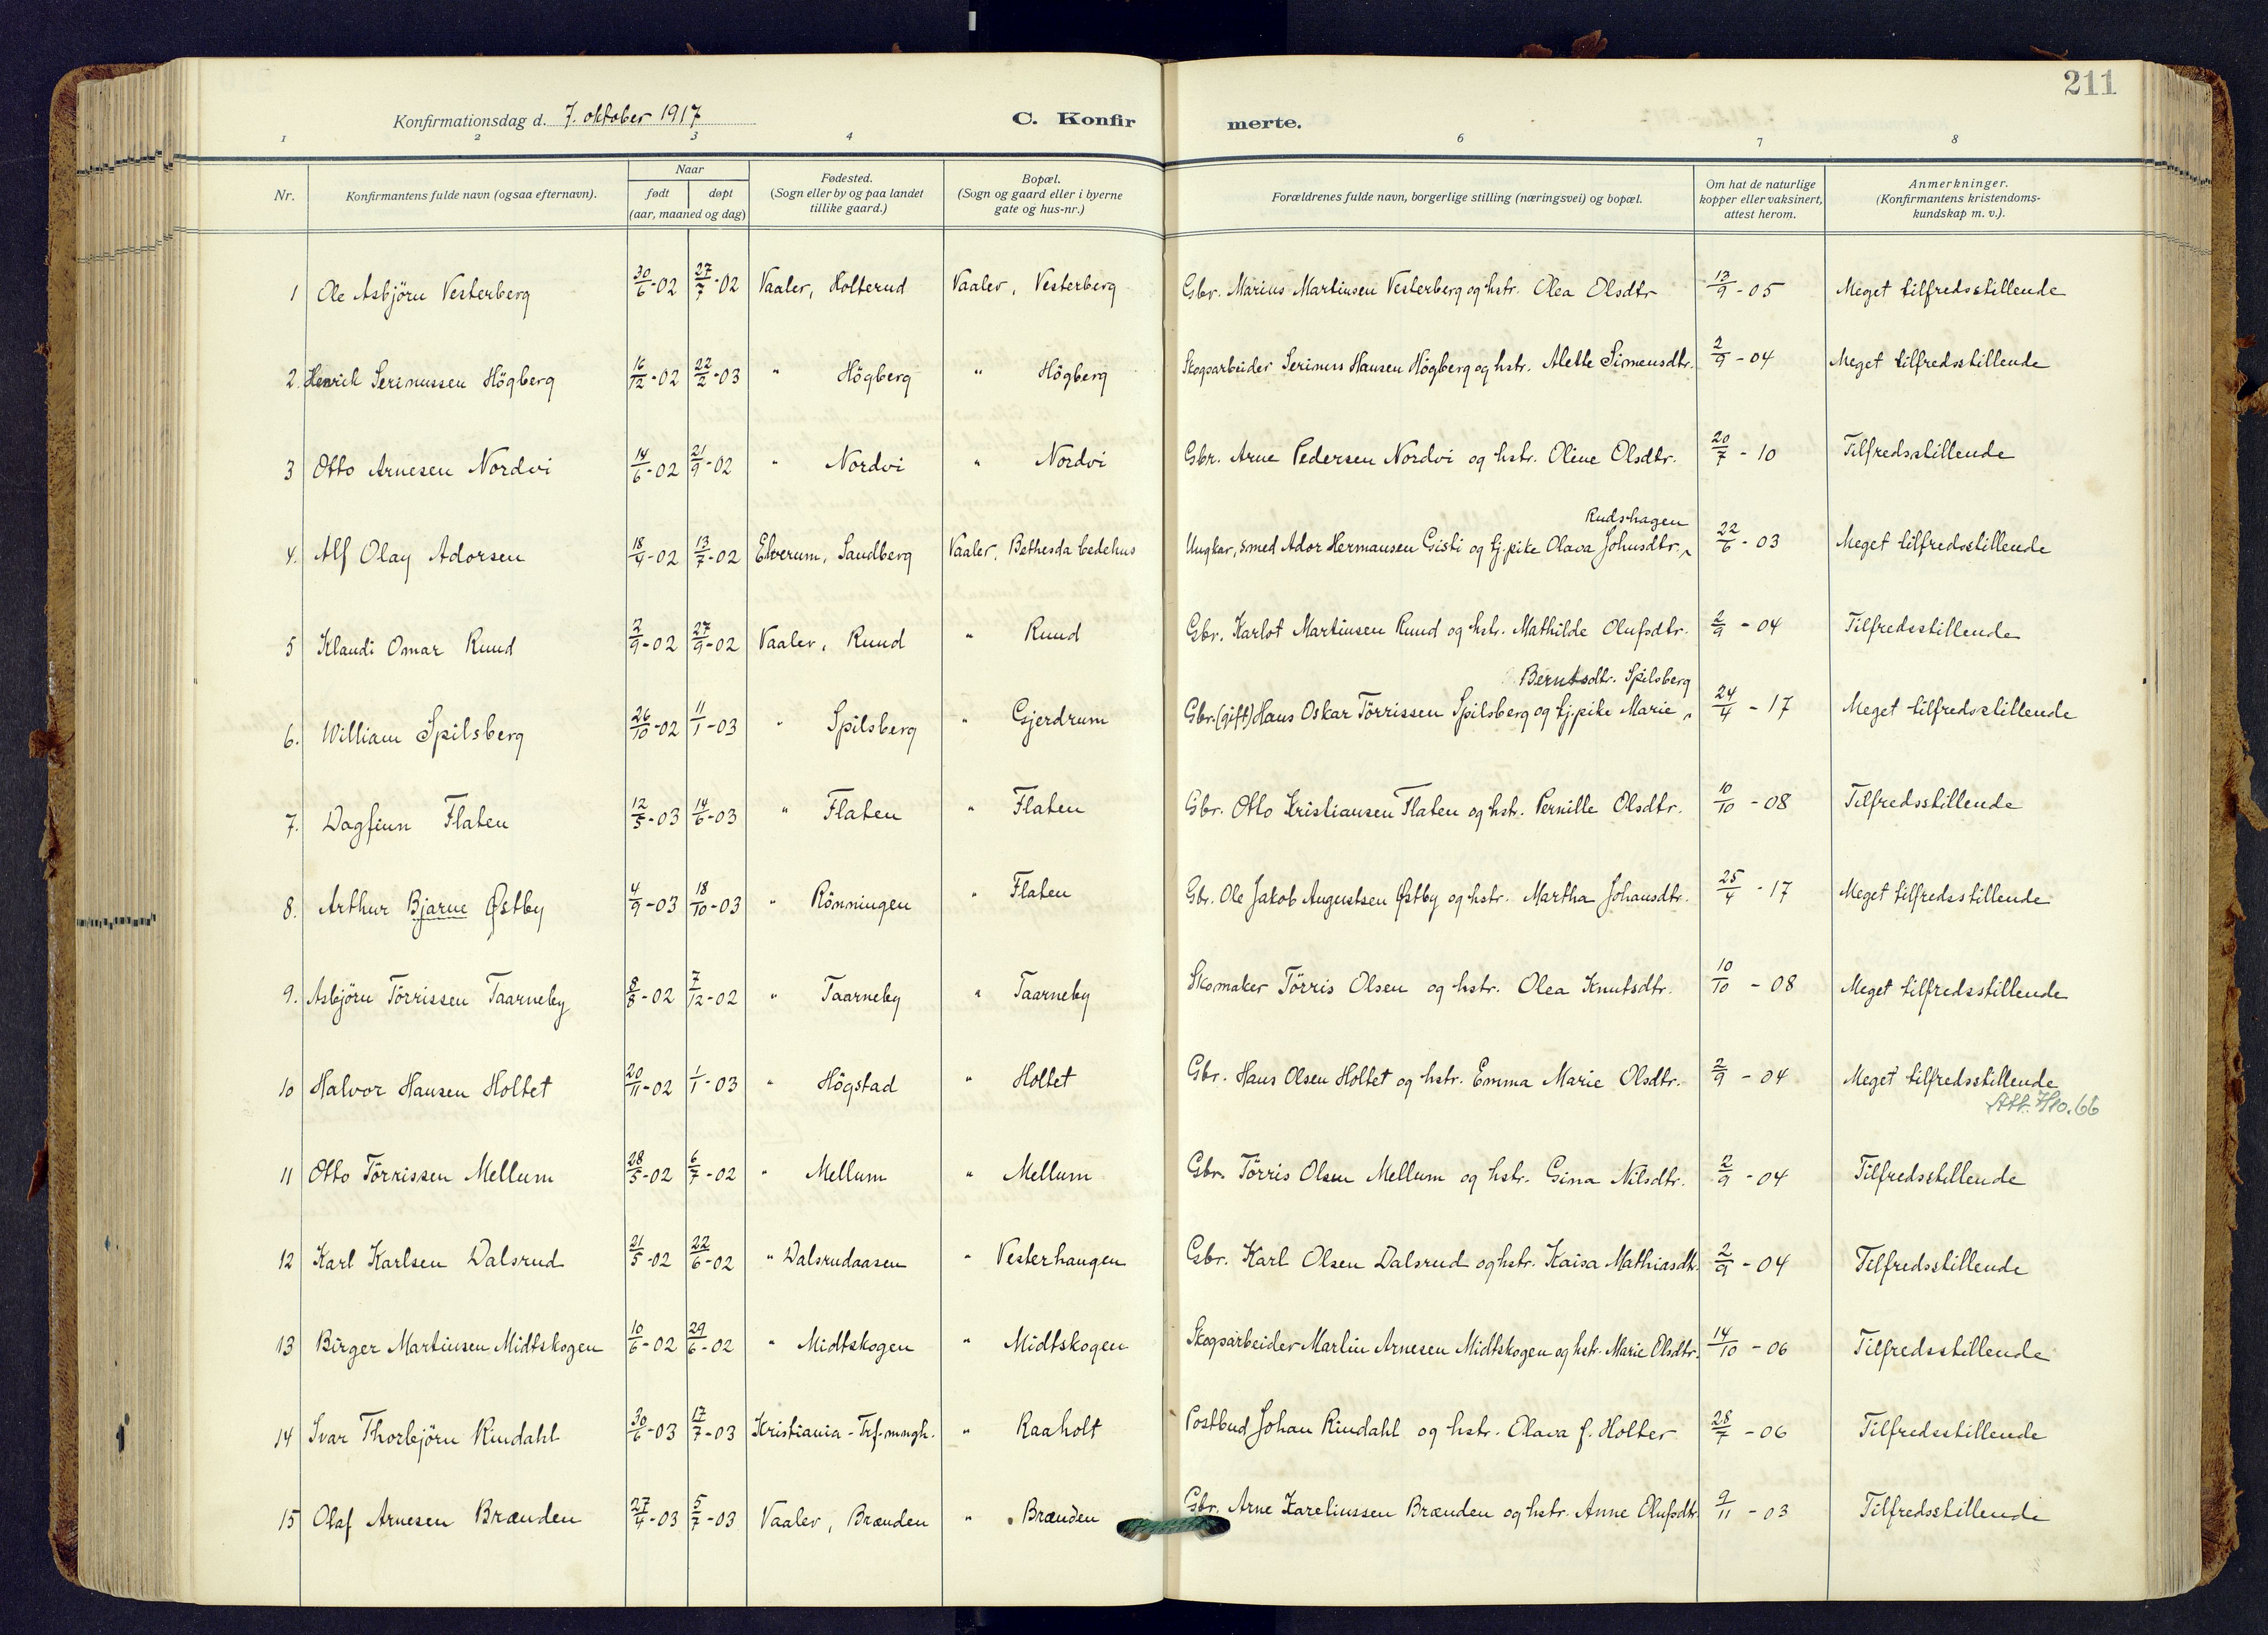 211
Konfirmationsdag d. 7. oktober 1917
C. Konfirmerte.
1 2 3 4 6 7 8
Nr. Konfirmantens fulde navn (ogsaa efternavn). Naar født døpt (aar, maaned og dag) Fødested. (Sogn eller by og paa landet tillike gaard.) Bopæl. (Sogn og gaard eller i byerne gate og hus-nr.) Forældrenes fulde navn, borgerlige stilling (næringsvei) og bopæl. Om hat de naturlige kopper eller vaksinert, attest herom. Anmerkninger. (Konfirmantens kristendomskundskap m. v.).
1 Ole Asbjörn Vesterberg 30/6-02 27/7-02 Vaaler, Holterud Vaaler, Vesterberg Gbr. Marius Martinsen Vesterberg og hstr. Olea Olsdtr 13/9-05 Meget tilfredsstillende
2. Henrik Serinussen Högberg 16/12-02 22/2-03 " Högberg " Högberg Skogsarbeider Serinus Hansen Högberg og hstr. Alette Simensdtr. 2/9-04 Meget tilfredsstillende
3 Otto Arnesen Nordvi 14/6-02 21/9-02 " Nordvi " Nordvi Gbr. Arne Pedersen Nordvi og hstr. Oline Olsdtr. 20/7-10 Tilfredsstillende
4. Alf Olay Adorsen 18/4-02 13/7-02 Elverum, Sandberg Vaaler, Bethesda bedehus Ungkar, smed Ador Hermansen Gisti og tj.pike Olava Johnsdtr. Rudshagen 22/6-03 Meget tilfredsstillende
5 Klaudi Omar Ruud 2/9-02 27/9-02 Vaaler, Ruud " Ruud Gbr. Karlot Martinsen Ruud og hstr. Mathilde Olufsdtr. 2/9-04 Tilfredsstillende
6. William Spilsberg 26/10-02 11/1-03 " Spilsberg " Gjerdrum Gbr. (gift) Hans Oskar Törrissen Spilsberg og tj.pike Marie Berntsdtr. Spilsberg 24/4-17 Meget tilfredsstillende
7. Dagfinn Flaten 12/5-03 14/6-03 " Flaten " Flaten Gbr. Otto Kristiansen Flaten og hstr. Pernille Olsdtr. 10/10-08 Tilfredsstillende
8. Arthur Bjarne Østby 4/9-03 18/10-03 " Rönningen " Flaten Gbr. Ole Jakob Augustsen Østby og hstr. Martha Johansdtr. 25/4-17 Meget tilfredsstillende
9. Asbjörn Törrissen Taarneby 8/8-02 7/12-02 " Taarneby " Taarneby Skomaker Törris Olsen og hstr. Olea Knutsdtr. 10/10-08 Meget tilfredsstillende
10 Halvor Hansen Holtet 20/11-02 1/1-03 " Högstad " Holtet Gbr. Hans Olsen Holtet og hstr. Emma Marie Olsdtr. 2/9-04 Meget tilfredsstillende
11 Otto Törrissen Mellum 28/5-02 6/7-02 " Mellum " Mellum Gbr. Törris Olsen Mellum og hstr. Gina Nilsdtr. 2/9-04 Tilfredsstillende
12 Karl Karlsen Dalsrud 21/5-02 22/6-02 " Dalsrudaasen " Vesterhaugen Gbr. Karl Olsen Dalsrud og hstr. Kaisa Mathiasdtr. 2/9-04 Tilfredsstillende
13 Birger Martinsen Midtskogen 10/6-02 29/6-02 " Midtskogen " Midtskogen Skogsarbeider Martin Arnesen Midtskogen og hstr. Marie Olsdtr. 14/10-06 Tilfredsstillende
14 Ivar Thorbjörn Rindahl 30/6-03 17/7-03 Kristiania - Trf.mngh. " Raaholt Postbud Johan Rindahl og hstr. Olava f. Holter 28/7-06 Tilfredsstillende
15 Olaf Arnesen Brænden 27/4-03 5/7-03 Vaaler, Brænden " Brænden Gbr. Arne Kareliussen Brænden og hstr. Anne Olufsdtr. 9/11-03 Tilfredsstillende